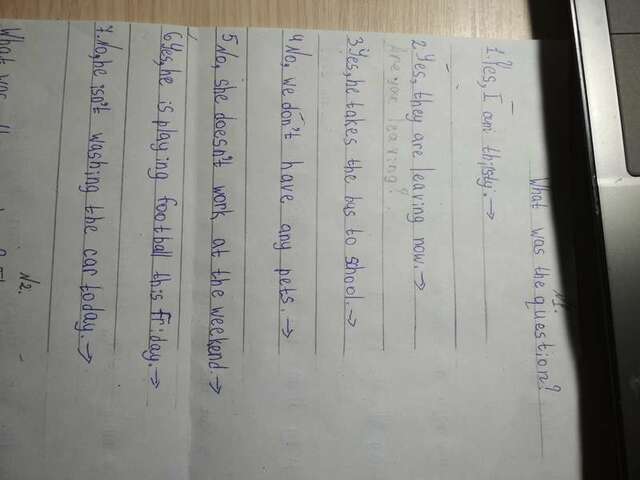 №1.
What was the question?
1. Yes, I am thirsty. →
2. Yes, they are leaving now. →
Are you leaving?
3. Yes, he takes the bus to school. →
4. No, we don't have any pets. →
5. No, she doesn't work at the weekend. →
6. Yes, he is playing football this friday. →
7. No, he isn't washing the car today. →
№2.
What was